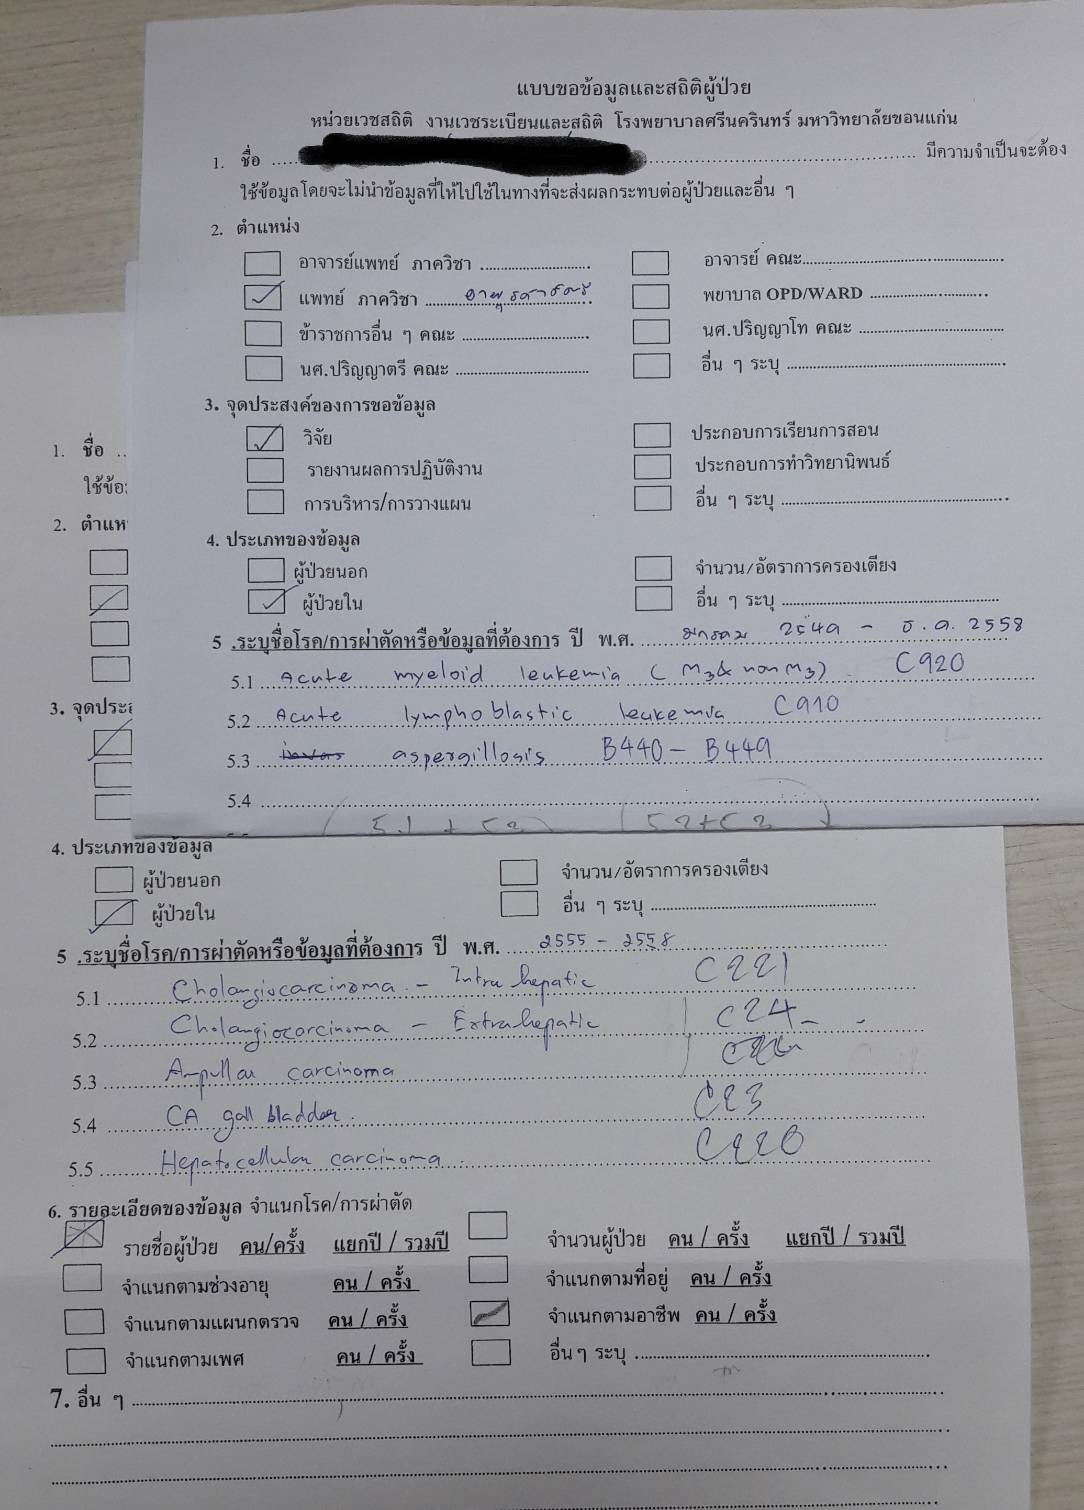 แบบขอข้อมูลและสถิติผู้ป่วย
หน่วยเวชสถิติ งานเวชระเบียนและสถิติ โรงพยาบาลศรีนครินทร์ มหาวิทยาลัยขอนแก่น
1. ชื่อ .... มีความจำเป็นจะต้อง
ใช้ข้อมูลโดยจะไม่นำข้อมูลที่ให้ไปใช้ในทางที่จะส่งผลกระทบต่อผู้ป่วยและอื่น ๆ
2. ตำแหน่ง
อาจารย์แพทย์ ภาควิชา .... อาจารย์ คณะ....
แพทย์ ภาควิชา .... อายุรศาสตร์ พยาบาล OPD/WARD ....
ข้าราชการอื่น ๆ คณะ .... นศ.ปริญญาโท คณะ ....
นศ.ปริญญาตรี คณะ .... อื่น ๆ ระบุ ....
3. จุดประสงค์ของการขอข้อมูล
วิจัย ประกอบการเรียนการสอน
รายงานผลการปฏิบัติงาน ประกอบการทำวิทยานิพนธ์
การบริหาร/การวางแผน อื่น ๆ ระบุ ....
4. ประเภทของข้อมูล
ผู้ป่วยนอก จำนวน/อัตราการครองเตียง
ผู้ป่วยใน อื่น ๆ ระบุ ....
5 .ระบุชื่อโรค/การผ่าตัดหรือข้อมูลที่ต้องการ ปี พ.ศ. .... มกราคม 2549 - ธ.ค. 2558
5.1 Acute myeloid leukemia ( M3 & non M3) C920
5.2 Acute lymphoblastic leukemia C910
5.3 aspergillosis B440 - B449
5.4 ....
1. ชื่อ ..
ใช้ข้อ
2. ตำแห
3. จุดประส
4. ประเภทของข้อมูล
ผู้ป่วยนอก จำนวน/อัตราการครองเตียง
ผู้ป่วยใน อื่น ๆ ระบุ ....
5 .ระบุชื่อโรค/การผ่าตัดหรือข้อมูลที่ต้องการ ปี พ.ศ. .... 2555 - 2558
5.1 Cholangiocarcinoma - Intrahepatic C221
5.2 Cholangiocarcinoma - Extrahepatic C24-
5.3 Ampullar carcinoma
5.4 CA gall bladder. C23
5.5 Hepatocellular carcinoma C220
6. รายละเอียดของข้อมูล จำแนกโรค/การผ่าตัด
รายชื่อผู้ป่วย คน/ครั้ง แยกปี / รวมปี จำนวนผู้ป่วย คน / ครั้ง แยกปี / รวมปี
จำแนกตามช่วงอายุ คน / ครั้ง จำแนกตามที่อยู่ คน / ครั้ง
จำแนกตามแผนกตรวจ คน / ครั้ง จำแนกตามอาชีพ คน / ครั้ง
จำแนกตามเพศ คน / ครั้ง อื่นๆ ระบุ ....
7. อื่น ๆ ....